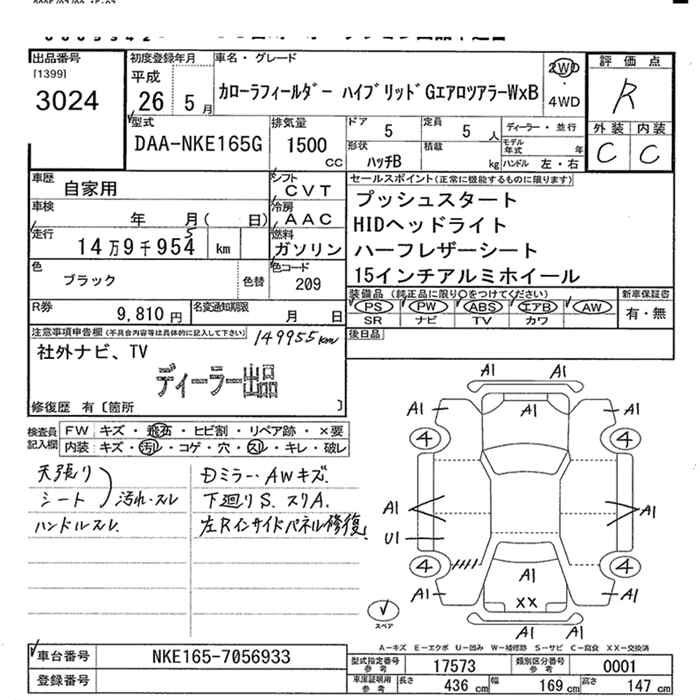 出品番号
[1399]
3024
初度登録年月
平成
26 5月
車名・グレード
カローラフィールダー ハイブリッドGエアロツアラーWxB
2WD
・
4WD
評価点
R
外装 内装
C C
型式
DAA-NKE165G
排気量
1500
CC
ドア 5
定員 5 人
ディーラー・並行
形状
ハッチB
積載 kg
モデル年式 年
ハンドル 左・右
車歴
自家用
シフト
CVT
車検
年 月( 日)
冷房
AAC
走行
14万9千954 km
5
燃料
ガソリン
色
ブラック
色替
色コード
209
R券
9,810円
名変通知期限
月 日
セールスポイント(正常に機能するものに限ります)
プッシュスタート
HIDヘッドライト
ハーフレザーシート
15インチアルミホイール
装備品(純正品に限り○をつけてください)
PS PW ABS エアB AW
SR ナビ TV カワ
新車保証書
有・無
後日品
注意事項申告欄(不具合内容等は具体的に記入して下さい)
149955km
社外ナビ、TV
ディーラー出品
修復歴 有〔箇所 〕
検査員記入欄
FW キズ・飛石・ヒビ割・リペア跡・×要
内装:キズ・汚れ・コゲ・穴・スレ・キレ・破レ
天張り
シート 汚れ・スレ
ハンドルスレ
Dミラー・AWキズ.
下廻りS.スリA.
左Rインサイドパネル修復
A1 A1
A1 A1
4 4
A1 A1
U1
4 4
A1 A1 A1
XX
A1 A1
スペア
A-キズ E-エクボ U-凹み W-補修跡 S-サビ C-腐食 XX-交換済
車台番号
NKE165-7056933
登録番号
型式指定番号
参考
17573
類別区分番号
参考
0001
車庫証明用
参考
長さ 436 cm
幅 169 cm
高さ 147 cm